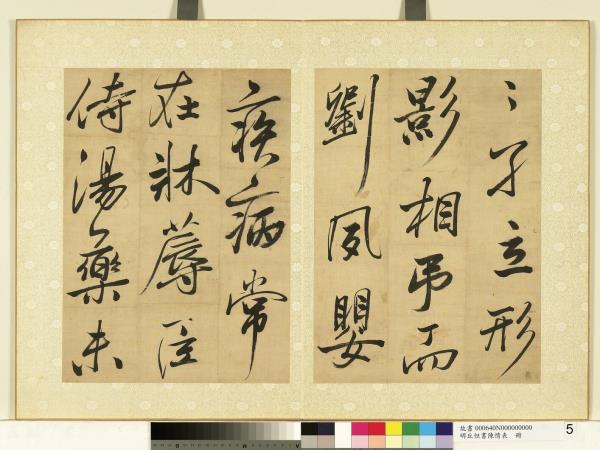 〻孑立形
影相吊而
劉夙嬰
疾病常
在牀蓐臣
侍湯藥未
故書 000640N000000000
明丘恒書陳情表 冊
5